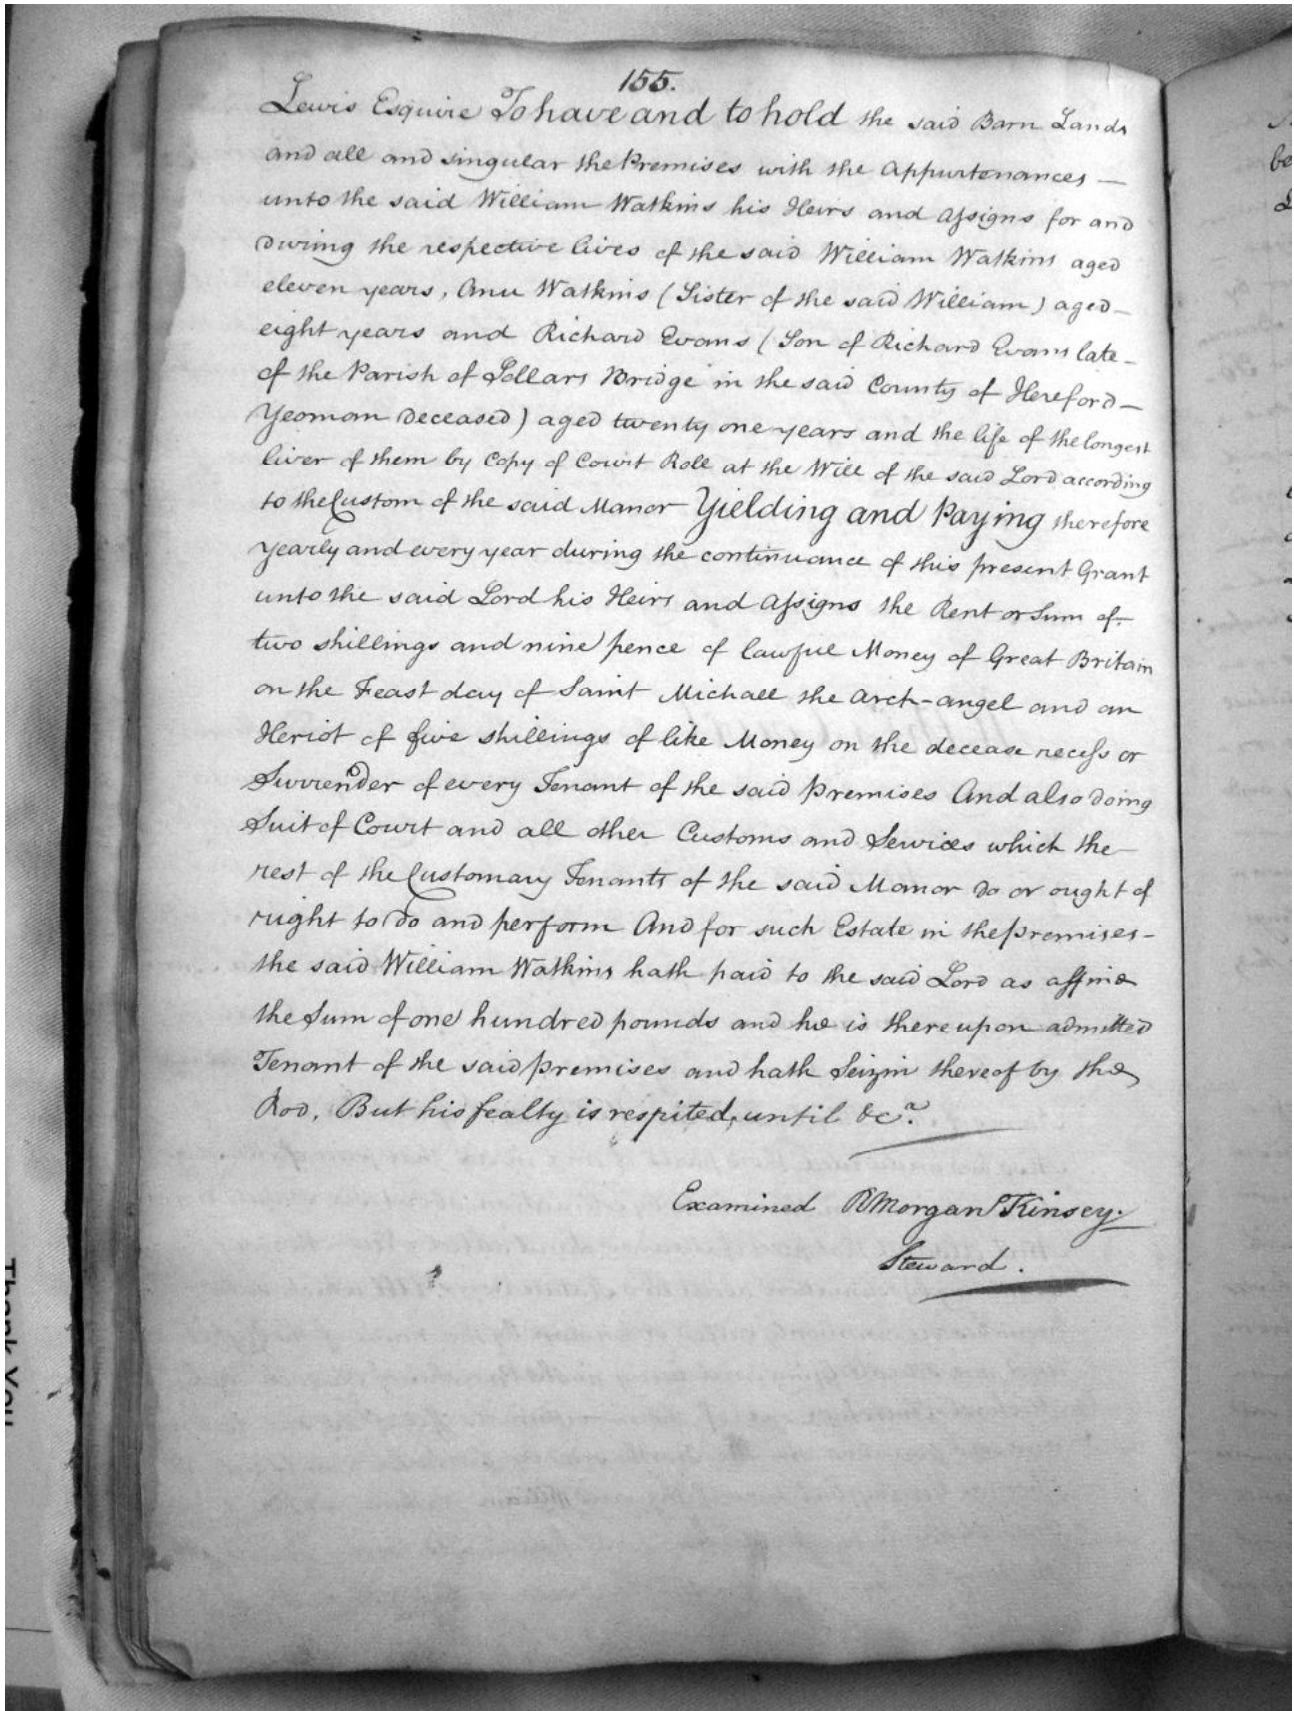 155.
Lewis Esquire To have and to hold the said Barn Lands
and all and singular the Premises with the Appurtenances —
unto the said William Watkins his Heirs and Assigns for and
during the respective lives of the said William Watkins aged
eleven years, Ann Watkins (Sister of the said William) aged —
eight years and Richard Evans (Son of Richard Evans late —
of the Parish of Sollars Bridge in the said County of Hereford —
Yeoman deceased) aged twenty one years and the life of the longest
liver of them by Copy of Court Roll at the Will of the said Lord according
to the Custom of the said Manor Yielding and Paying therefore
yearly and every year during the continuance of this present Grant
unto the said Lord his Heirs and Assigns the Rent or Sum of —
two shillings and nine pence of lawful Money of Great Britain
on the Feast day of Saint Michall the Arch-angel and an
Heriot of five shillings of like Money on the decease recess or
Surrender of every Tenant of the said Premises And also doing
Suit of Court and all other Customs and Services which the —
rest of the Customary Tenants of the said Manor do or ought of
right to do and perform And for such Estate in the premises —
the said William Watkins hath paid to the said Lord as affine
the Sum of one hundred pounds and he is thereupon admitted
Tenant of the said premises and hath Seizin thereof by the
Rod, But his fealty is respited, until &c.
Examined R Morgan Kinsey.
Steward.
be
Thank You